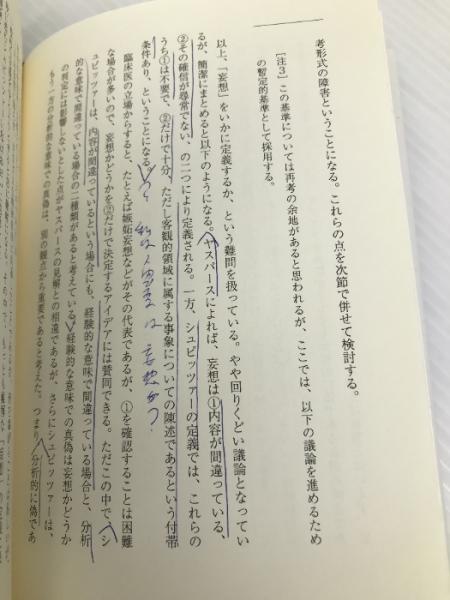 考形式の障害ということになる。これらの点を次節で併せて検討する。
［注３］この基準については再考の余地があると思われるが、ここでは、以下の議論を進めるため
の暫定的基準として採用する。
以上、「妄想」をいかに定義するか、という難問を扱っている。やや回りくどい議論となってい
るが、簡潔にまとめると以下のようになる。ヤスパースによれば、妄想は①内容が間違っている、
②その確信が尋常でない、の二つにより定義される。一方、シュピッツァーの定義では、これらの
うち①は不要で、②だけで十分、ただし客観的領域に属する事象についての陳述であるという付帯
条件あり、ということになる。
臨床医の立場からすると、たとえば嫉妬妄想などがその代表であるが、①を確認することは困難
な場合が多いので、妄想かどうかを②だけで決定するアイデアには賛同できる。ただこの中で、シ
ュピッツァーは、内容が間違っているという場合にも、経験的な意味で間違っている場合と、分析
的な意味で間違っている場合の二種類があると考えている。経験的な意味での真偽は妄想かどうか
の判定には影響しないとした点がヤスパースの見解との相違であるが、さらにシュピッツァーは、
もう一方の分析的な意味での真偽は、別の観点から重要であると考えた。つまり、分析的に偽であ